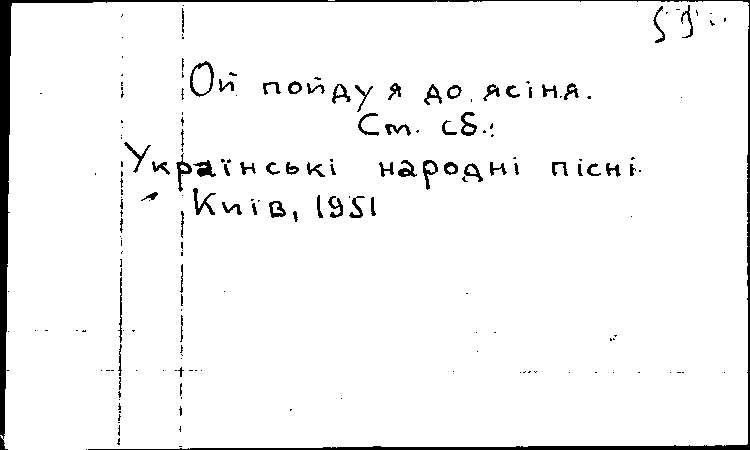 Ой пойду я до ясіня.
Ст. сб.:
Українські народні пісні
Київ, 1951